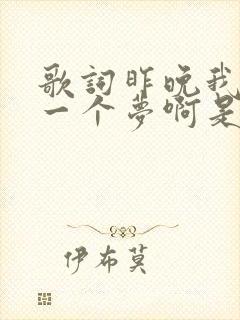 歌詞昨晚我
一个夢啊是
伊布莫